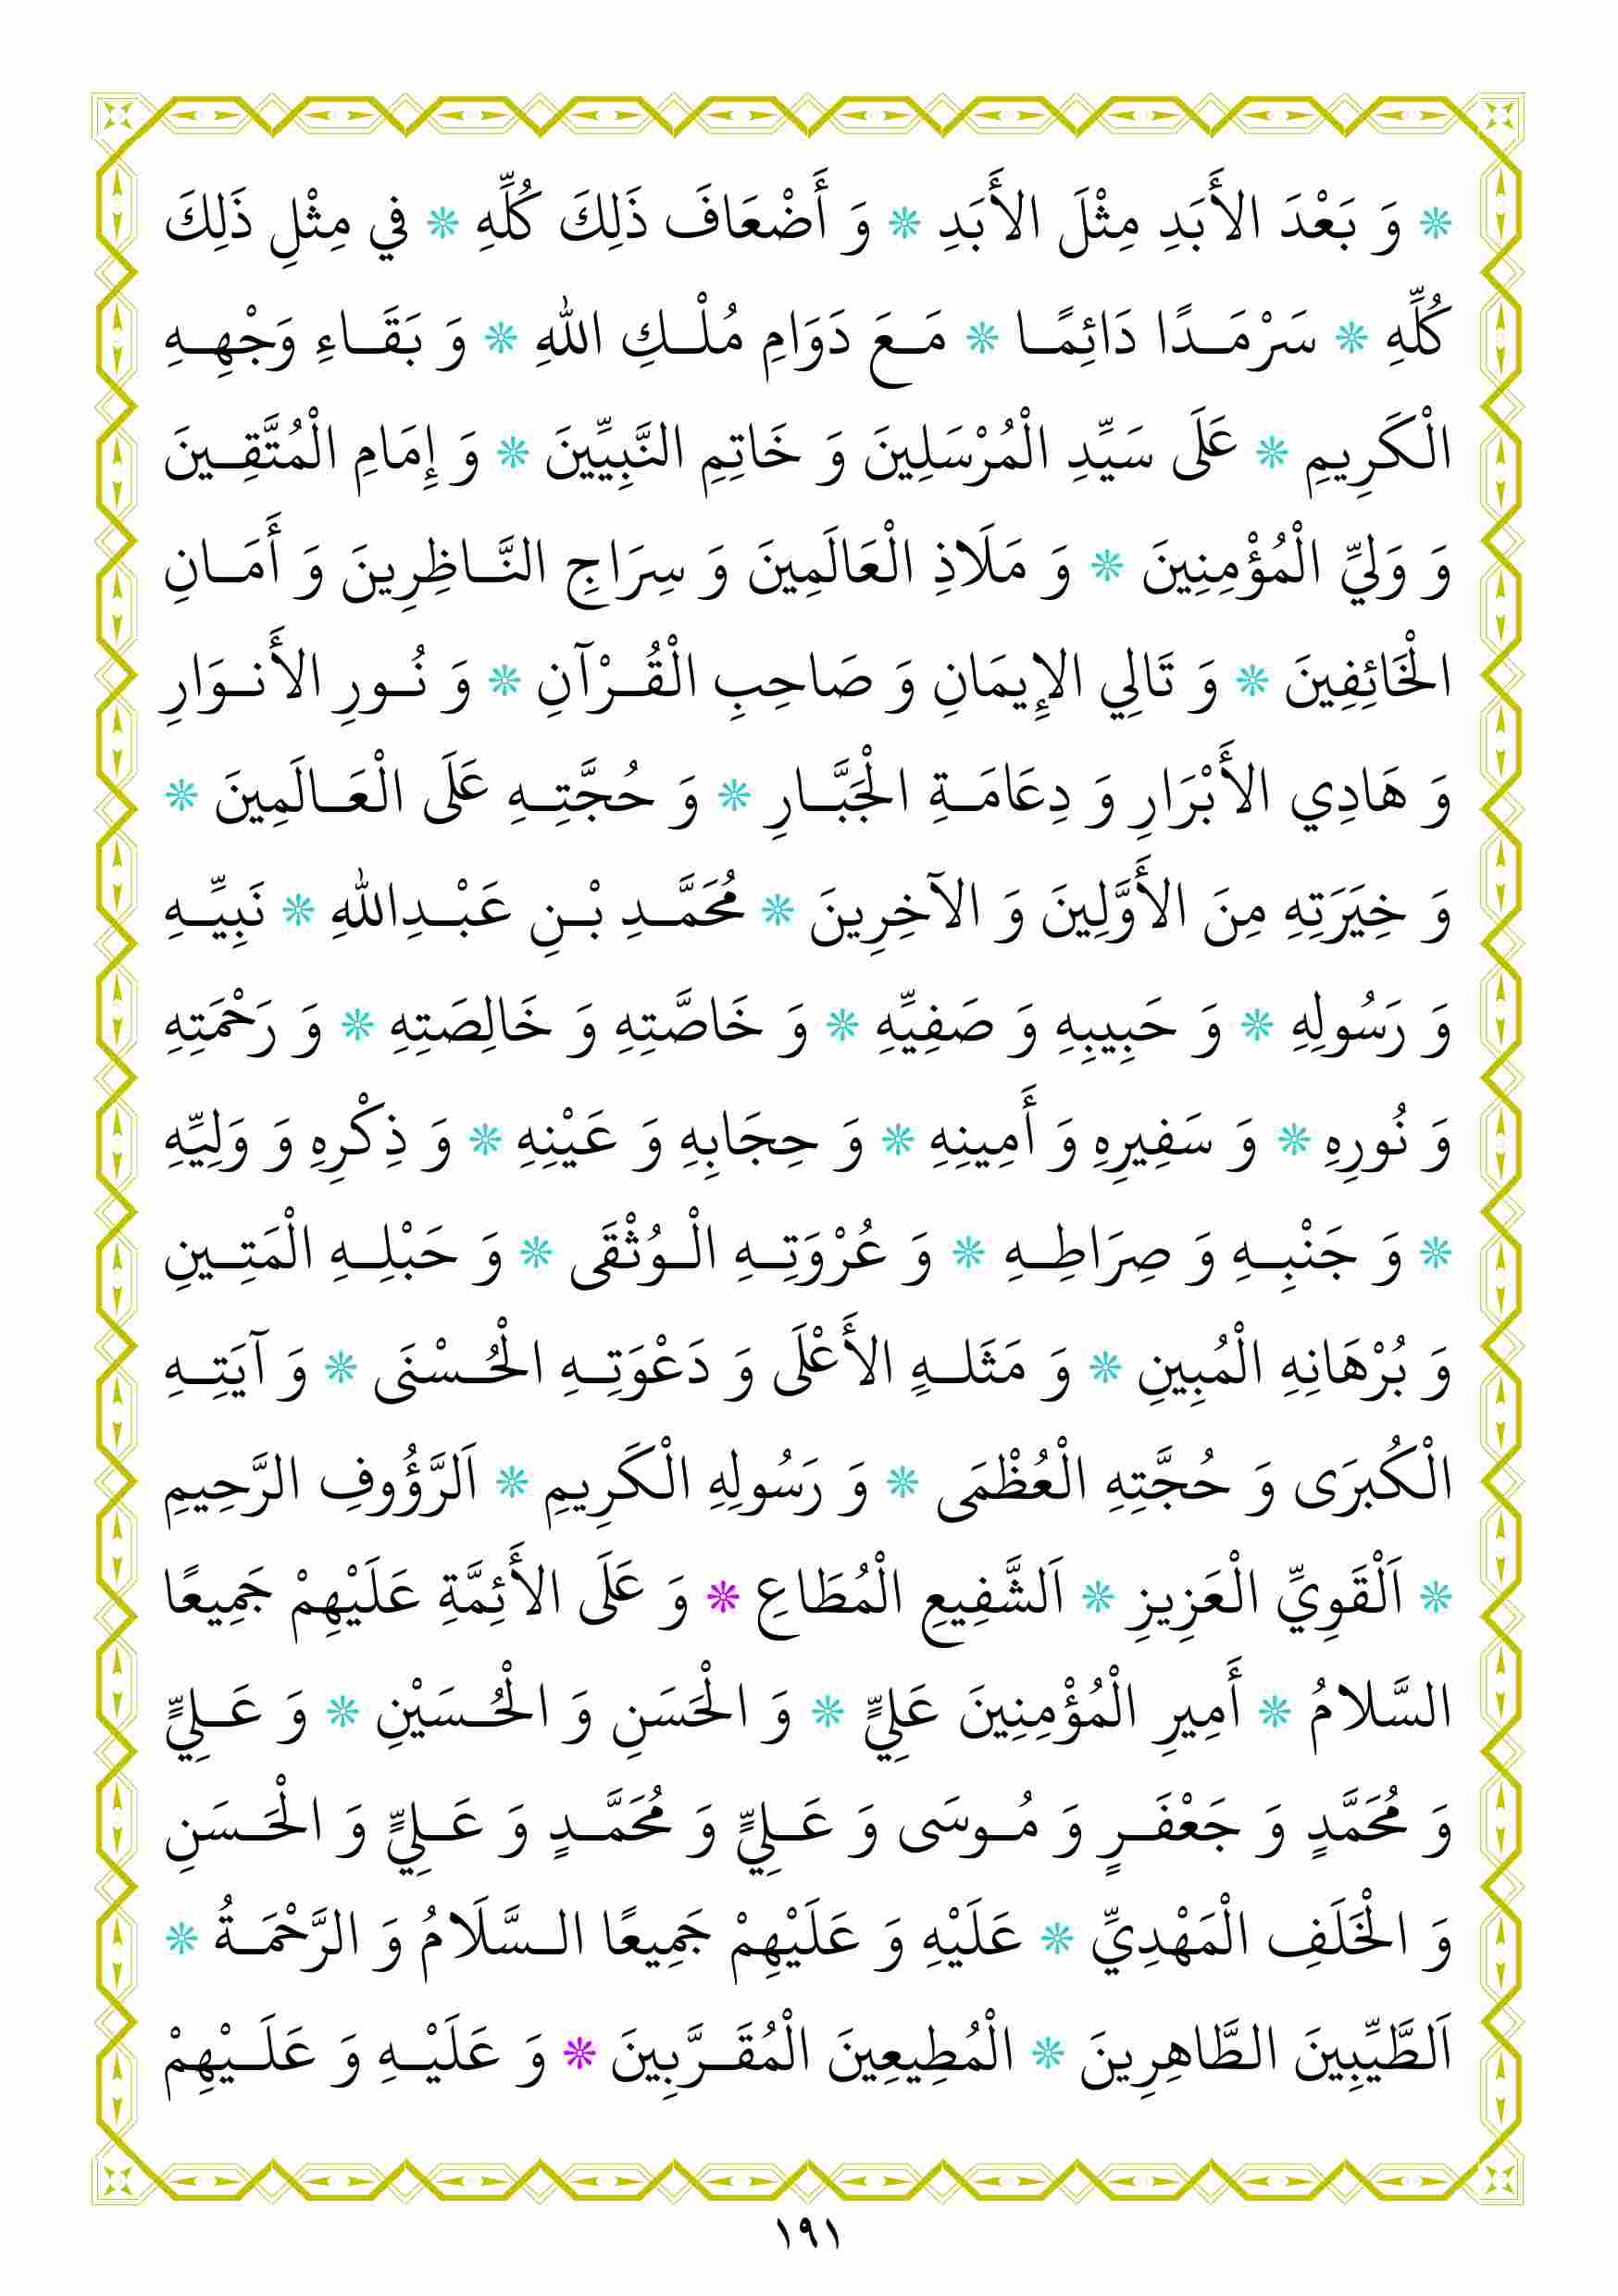 * وَ بَعْدَ الأَبَدِ مِثْلَ الأَبَدِ * وَ أَضْعَافَ ذَلِكَ كُلِّهِ * فِي مِثْلِ ذَلِكَ
كُلِّهِ * سَرْمَـدًا دَائِمًـا * مَـعَ دَوَامِ مُلْـكِ اللهِ * وَ بَقَـاءِ وَجْهِـهِ
الْكَرِيمِ * عَلَى سَيِّدِ الْمُرْسَلِينَ وَ خَاتِمِ النَّبِيِّينَ * وَ إِمَامِ الْمُتَّقِـينَ
وَ وَلِيِّ الْمُؤْمِنِينَ * وَ مَلَاذِ الْعَالَمِينَ وَ سِرَاجِ النَّـاظِرِينَ وَ أَمَـانِ
الْخَائِفِينَ * وَ تَالِي الإِيمَانِ وَ صَاحِبِ الْقُـرْآنِ * وَ نُـورِ الأَنـوَارِ
وَ هَادِي الأَبْرَارِ وَ دِعَامَـةِ الْجَبَّـارِ * وَ حُجَّتِـهِ عَلَى الْعَـالَمِينَ *
وَ خِيَرَتِهِ مِنَ الأَوَّلِينَ وَ الآخِرِينَ * مُحَمَّـدِ بْـنِ عَبْـدِاللهِ * نَبِيِّـهِ
وَ رَسُولِهِ * وَ حَبِيبِهِ وَ صَفِيِّهِ * وَ خَاصَّتِهِ وَ خَالِصَتِهِ * وَ رَحْمَتِهِ
وَ نُورِهِ * وَ سَفِيرِهِ وَ أَمِينِهِ * وَ حِجَابِهِ وَ عَيْنِهِ * وَ ذِكْرِهِ وَ وَلِيِّهِ
* وَ جَنْبِـهِ وَ صِرَاطِـهِ * وَ عُرْوَتِـهِ الْـوُثْقَى * وَ حَبْلِـهِ الْمَتِـينِ
وَ بُرْهَانِهِ الْمُبِينِ * وَ مَثَلـهِ الأَعْلَى وَ دَعْوَتِـهِ الْحُـسْنَى * وَ آيَتِـهِ
الْكُبرَى وَ حُجَّتِهِ الْعُظْمَى * وَ رَسُولِهِ الْكَرِيمِ * اَلرَّؤُوفِ الرَّحِيمِ
* اَلْقَوِيِّ الْعَزِيزِ * اَلشَّفِيعِ الْمُطَاعِ * وَ عَلَى الأَئِمَّةِ عَلَيْهِمْ جَمِيعًا
السَّلامُ * أَمِيرِ الْمُؤْمِنِينَ عَلِيٍّ * وَ الْحَسَنِ وَ الْحُـسَيْنِ * وَ عَـلِيٍّ
وَ مُحَمَّدٍ وَ جَعْفَـرٍ وَ مُـوسَى وَ عَـلِيٍّ وَ مُحَمَّـدٍ وَ عَـلِيٍّ وَ الْحَـسَنِ
وَ الْخَلَفِ الْمَهْدِيِّ * عَلَيْهِ وَ عَلَيْهِمْ جَمِيعًا الـسَّلَامُ وَ الرَّحْمَـةُ *
اَلطَّيِّبِينَ الطَّاهِرِينَ * الْمُطِيعِينَ الْمُقَـرَّبِينَ * وَ عَلَيْـهِ وَ عَلَـيْهِمْ
١٩١